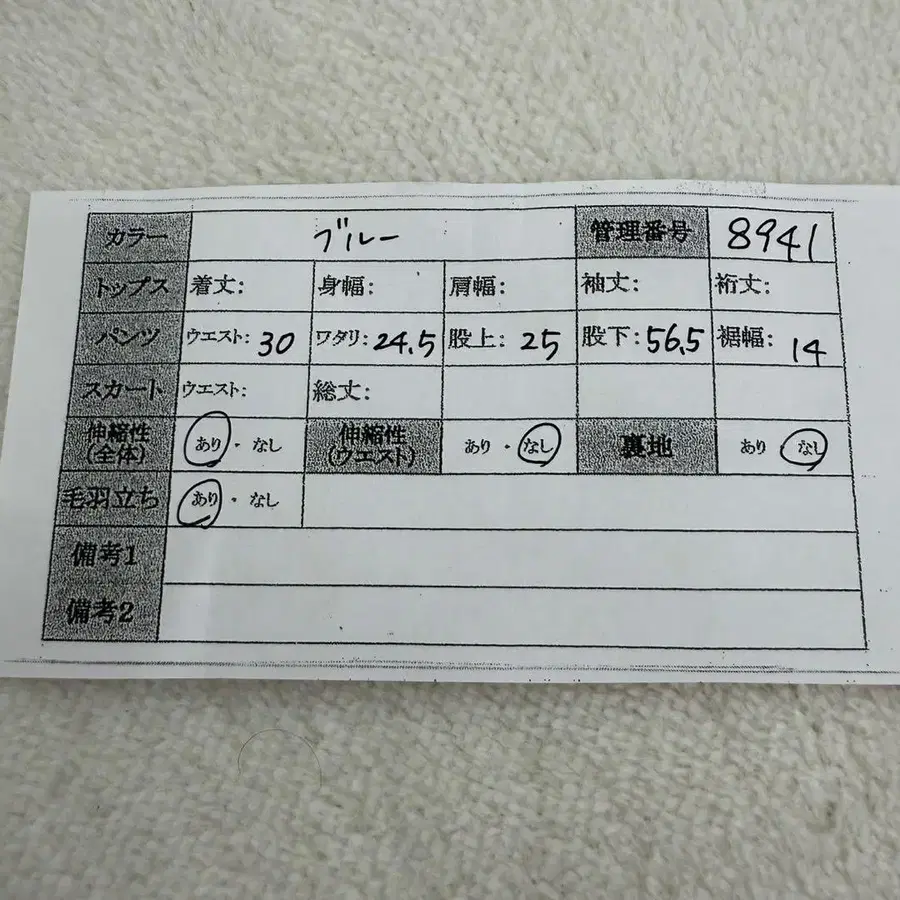 カラー ブルー 管理番号 8941
トップス 着丈: 身幅: 肩幅: 袖丈: 裄丈:
パンツ ウエスト: 30 ワタリ: 24.5 股上: 25 股下: 56.5 裾幅: 14
スカート ウエスト: 総丈:
伸縮性(全体) あり・なし 伸縮性(ウエスト) あり・なし 裏地 あり なし
毛羽立ち あり・なし
備考1
備考2